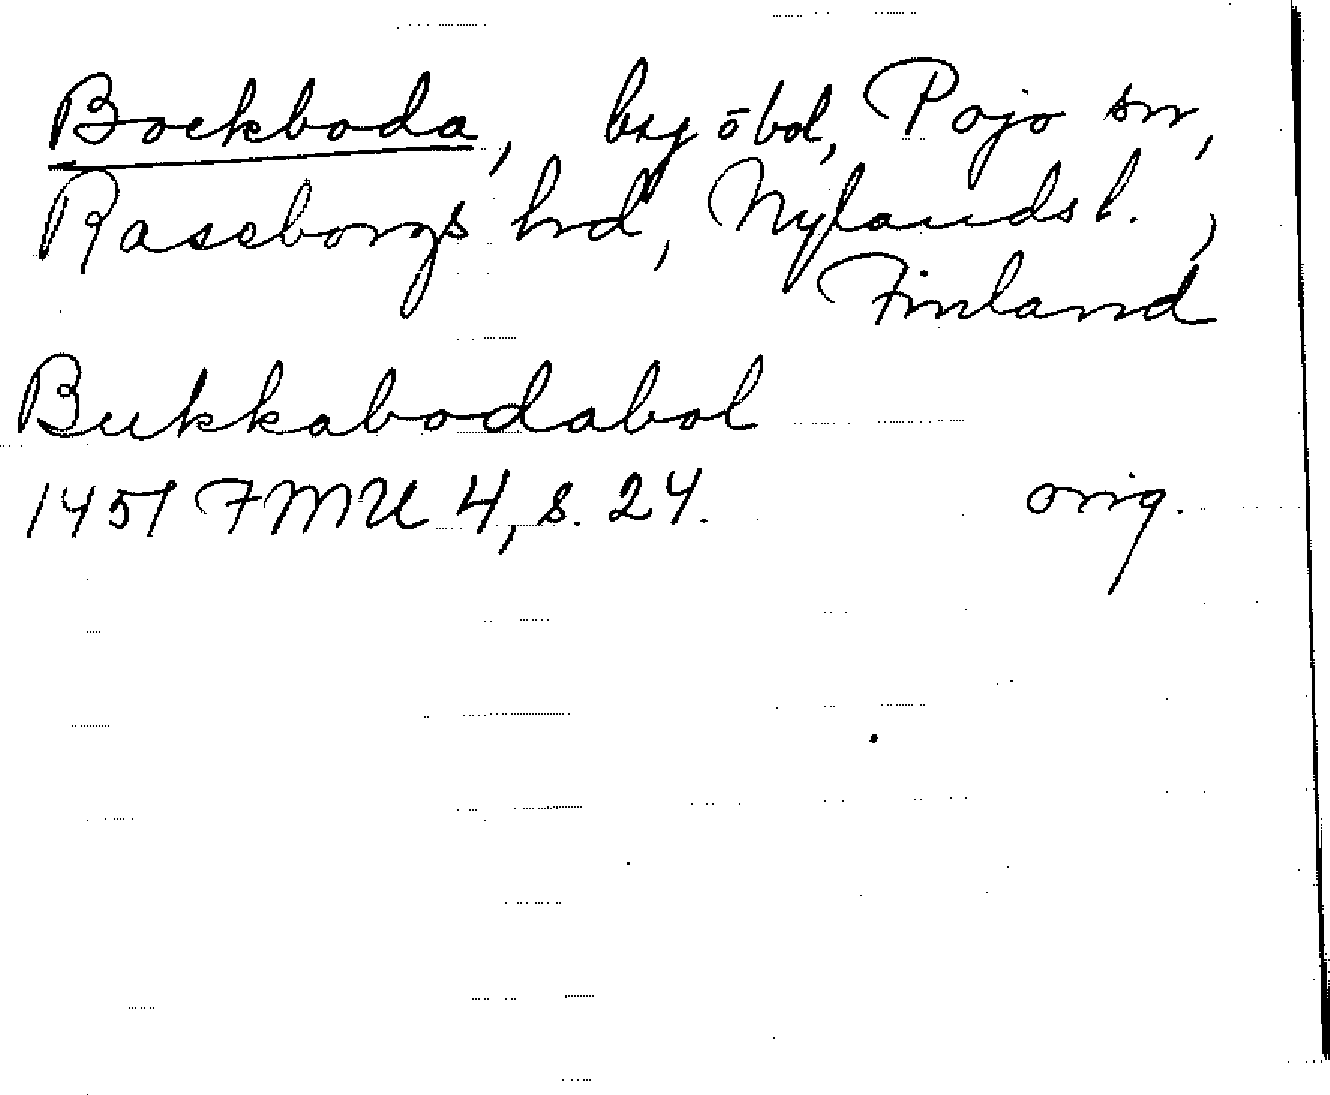 Bockboda, by o bol, Pojo sn,
Raseborgs hrd, Nylands l.,
Finland
Bukkabodabol
1451 FMU 4, s. 24. orig.